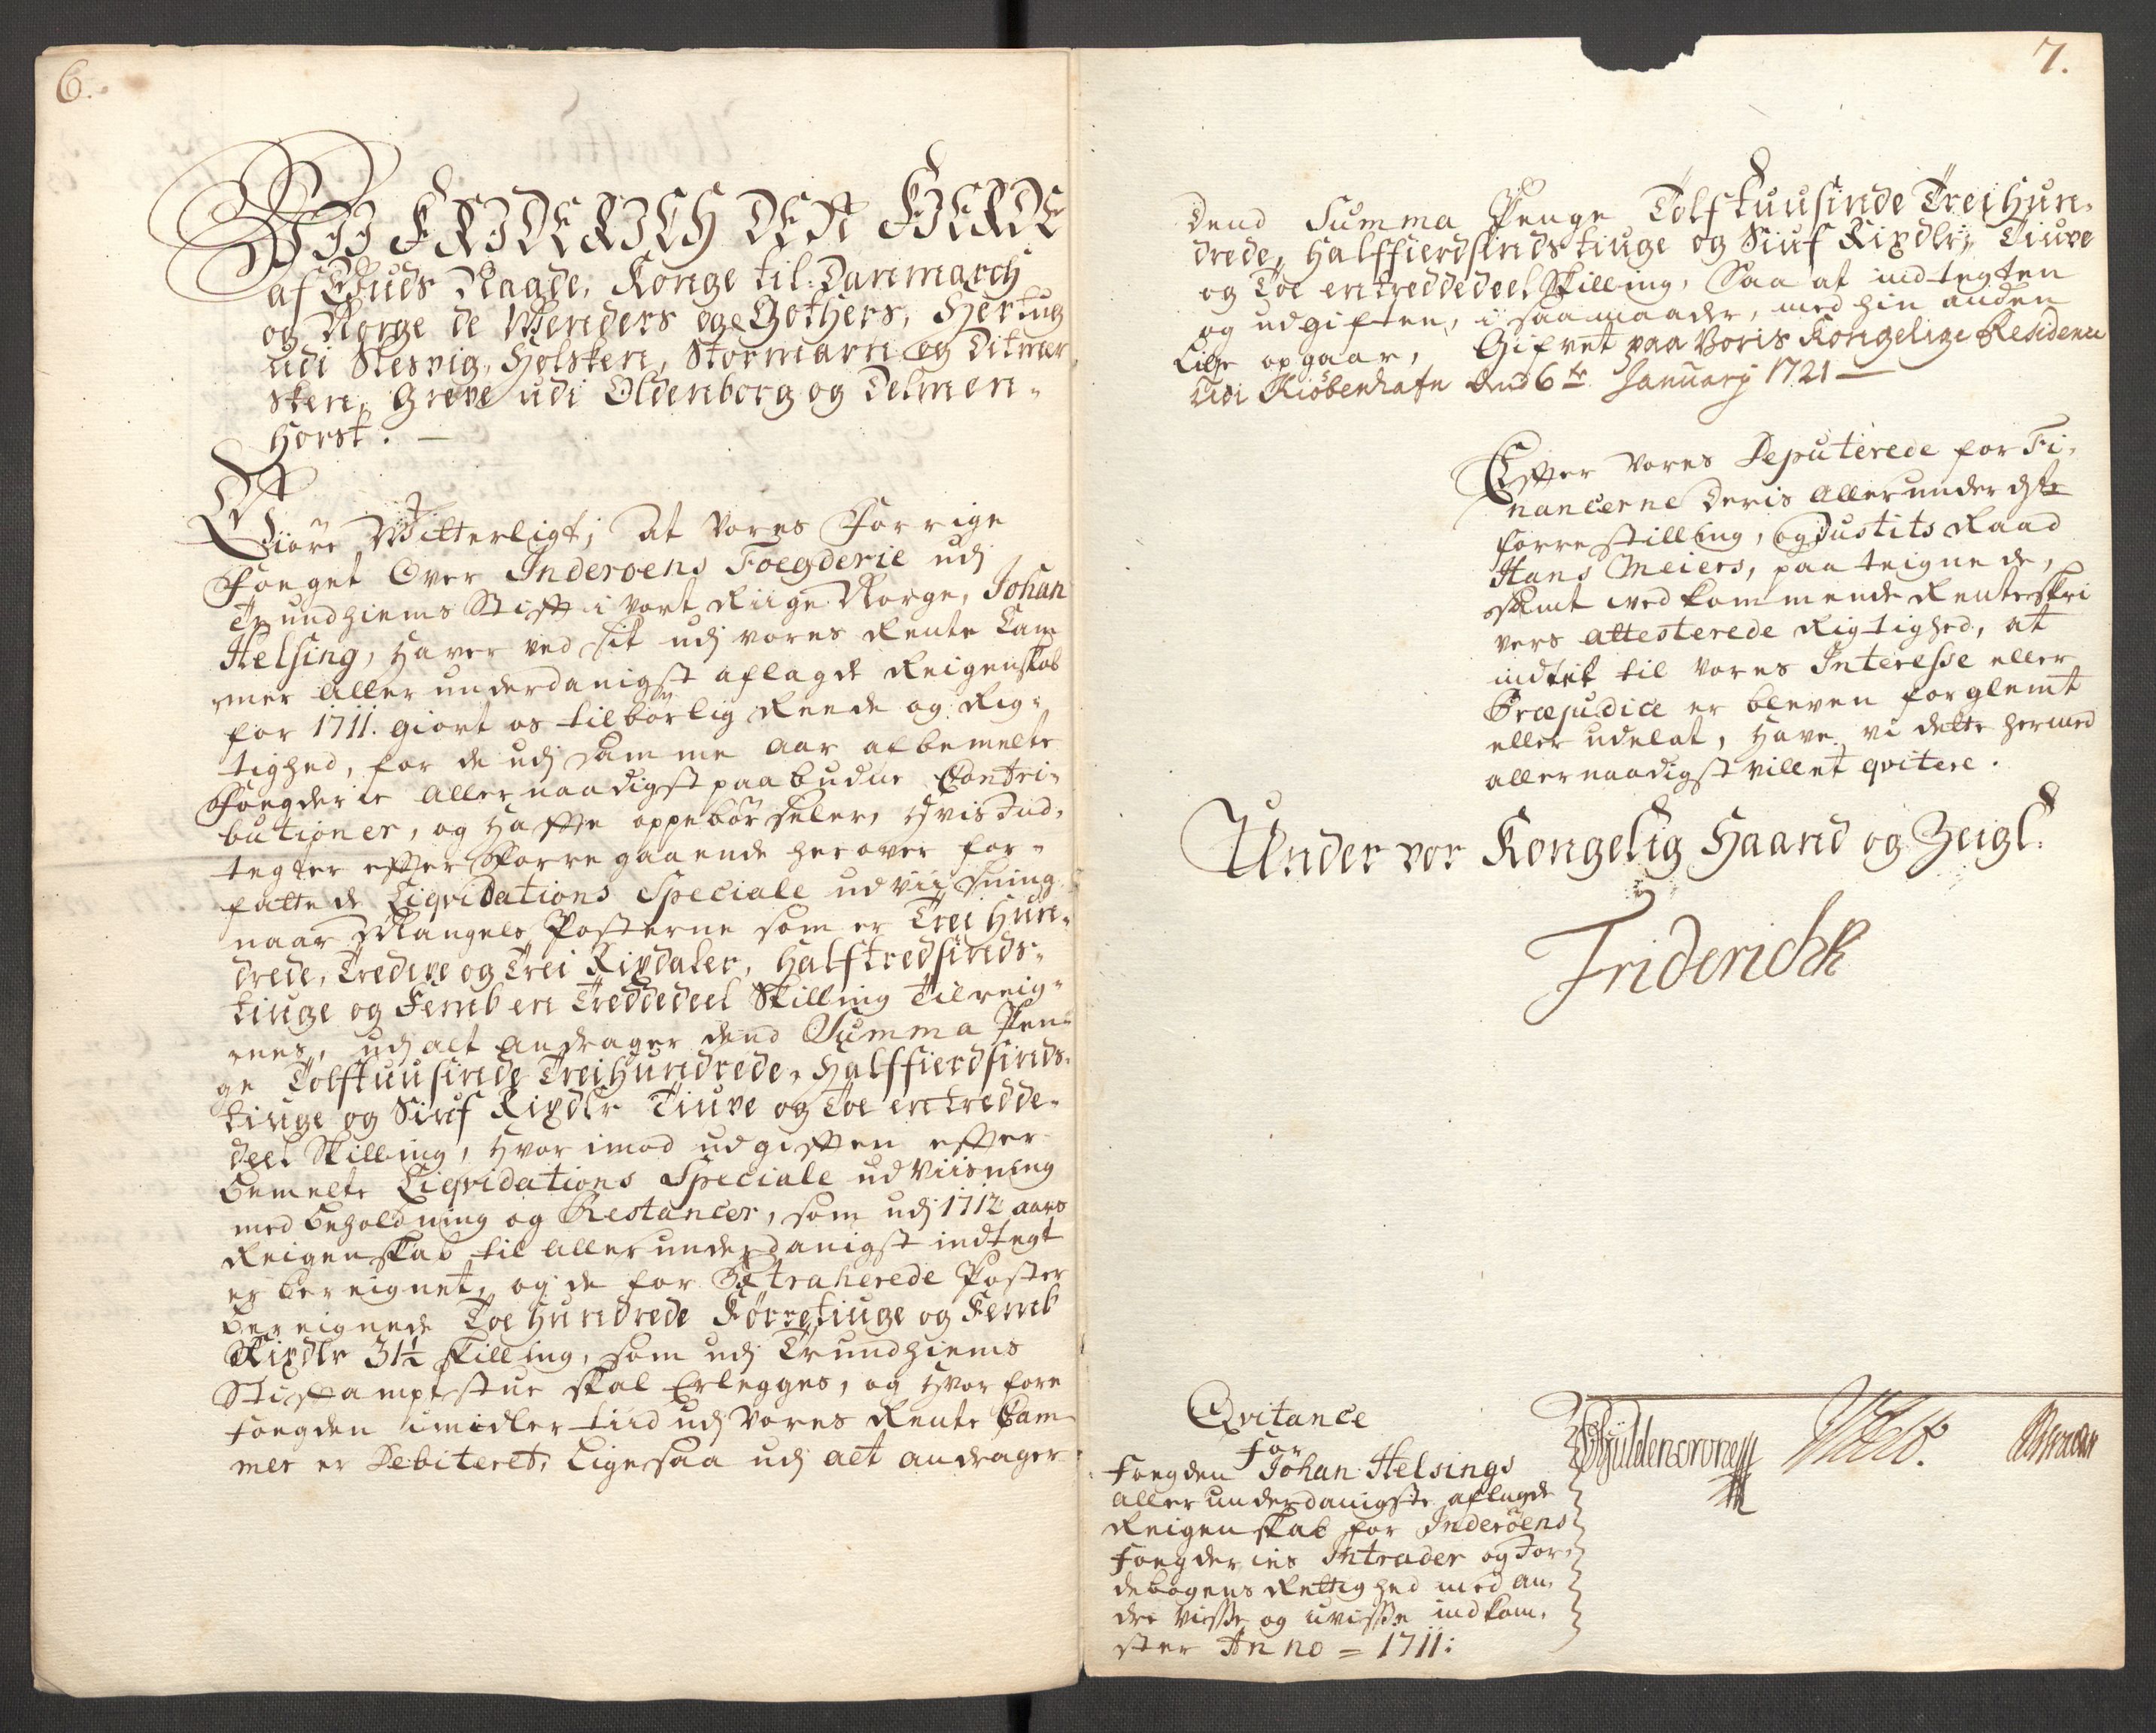 6.
VII FRIDERICH DEN FIERDE
af Guds Naade, Konge til Danmarch
og Norge de Wenders og Gothers, Hertug
udi Slesvig, Holsten, Stormarn og Ditmer
sken, Greve udi Oldenborg og Delmen-
Horst.
Giöre Witterligt; At vores Forrige
Foeget Over Inderoens Foegderie udj
Trundhiems Stifft i vort Riige Norge, Johan
Helsing, haver ved sit udj vores Rente Cam
mer allerunderdanigst aflagde Reigenskab
for 1711. giort os tilbörlig Reede og Rig-
tighed, for de udj samme Aar af bemelte
Foegderie allernaadigst paabudne Contri-
butioner, og hafte oppebörseler, hvis Ind-
tegter effter Forregaaende herover for-
fattede Liqvidations Speciale udviisning
naar Mangels Posterne som er Trei Hun-
drede, Tredive og Trei Rixdaler, Halftredsinds-
tiuge og Femb en Treddedeel Skilling Tilreig-
nes, udj alt andrager dend Summa Pen-
ge Tolftuusinde Trei Hundrede, Halffierdsinds-
tiuge og Siuf Rixdlr Tiuve og Toe en tredde-
deel Skilling, hvorimod udgifften effter
bemelte Liqvidations Speciale udviisning
med beholdning og Restancer, som udj 1712 aars
Reigenskab til allerunderdanigst indtegt
er bereignet, og de for Extraherede Poster
bereignede Toe Hundrede Førretiuge og Femb
Rixdlr 31½ skilling, som udj Trundhiems
Stifftamptstue skal Erlegges, og hvor fore
Foegden imidlertiid udj vores Rente Cam-
mer er Debiteret, Ligesaa udj alt andrager
7.
dend Summa Penge Tolftuusinde Trei Hun-
drede, Halffierdsindstiuge og Siuf Rixdlr, Tiuve
og Toe en treddedeel Skilling, Saa at indtegten
og udgiften, i saamaader, med hin anden
Lige opgaar, Gifvet paa Voris Kongelige Residence
Udi Kiöbenhafn dend 6te January 1721
Effter vores Deputerede for Fi-
nancerne deris allerunderdgste
forrestilling, og Justits Raad
Hans Meiers, paateignede,
samt vedkommende Renteskri
vers attesterede Rigtighed, at
indtet til vores Interesse eller
Præjudice er bleven forglemt
eller udelat, have vi dette hermed
allernaadigst villet qvitere.
Under vor Kongelig Haand og Zeigl.
Friderich R
Qvitance
For
Foegden Johan Helsings
allerunderdanigste aflagde
Reigenskab for Inderöens
Foegderies Intrader og Jor-
debogens Rettighed med an-
dre visse og uvisse indkom-
ster Anno = 1711:
Gyldencrone